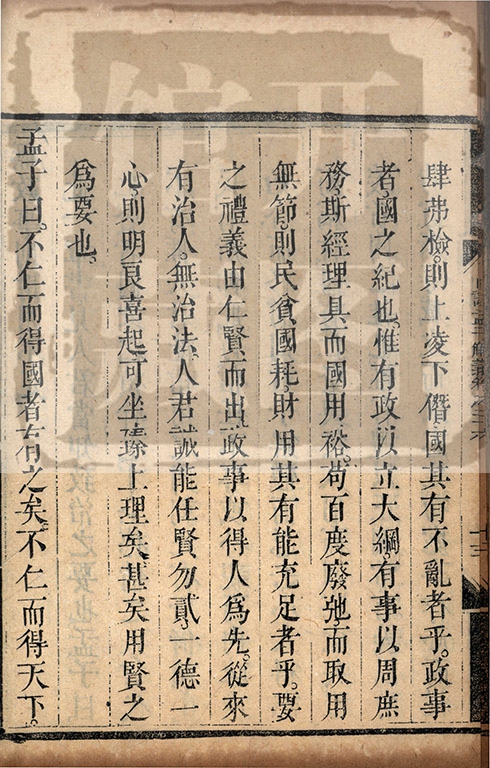 肆弗檢。則上凌下僭。國其有不亂者乎。政事
者國之紀也。惟有政以立大綱。有事以周庶
務。斯經理具而國用裕。苟百度廢弛而取用
無節。則民貧國耗。財用其有能充足者乎。要
之禮義由仁賢而出。政事以得人爲先。從來
有治人。無治法。人君誠能任賢勿貳。一德一
心。則明良喜起。可坐臻上理矣。甚矣用賢之
爲要也。
孟子曰。不仁而得國者有之矣。不仁而得天下。